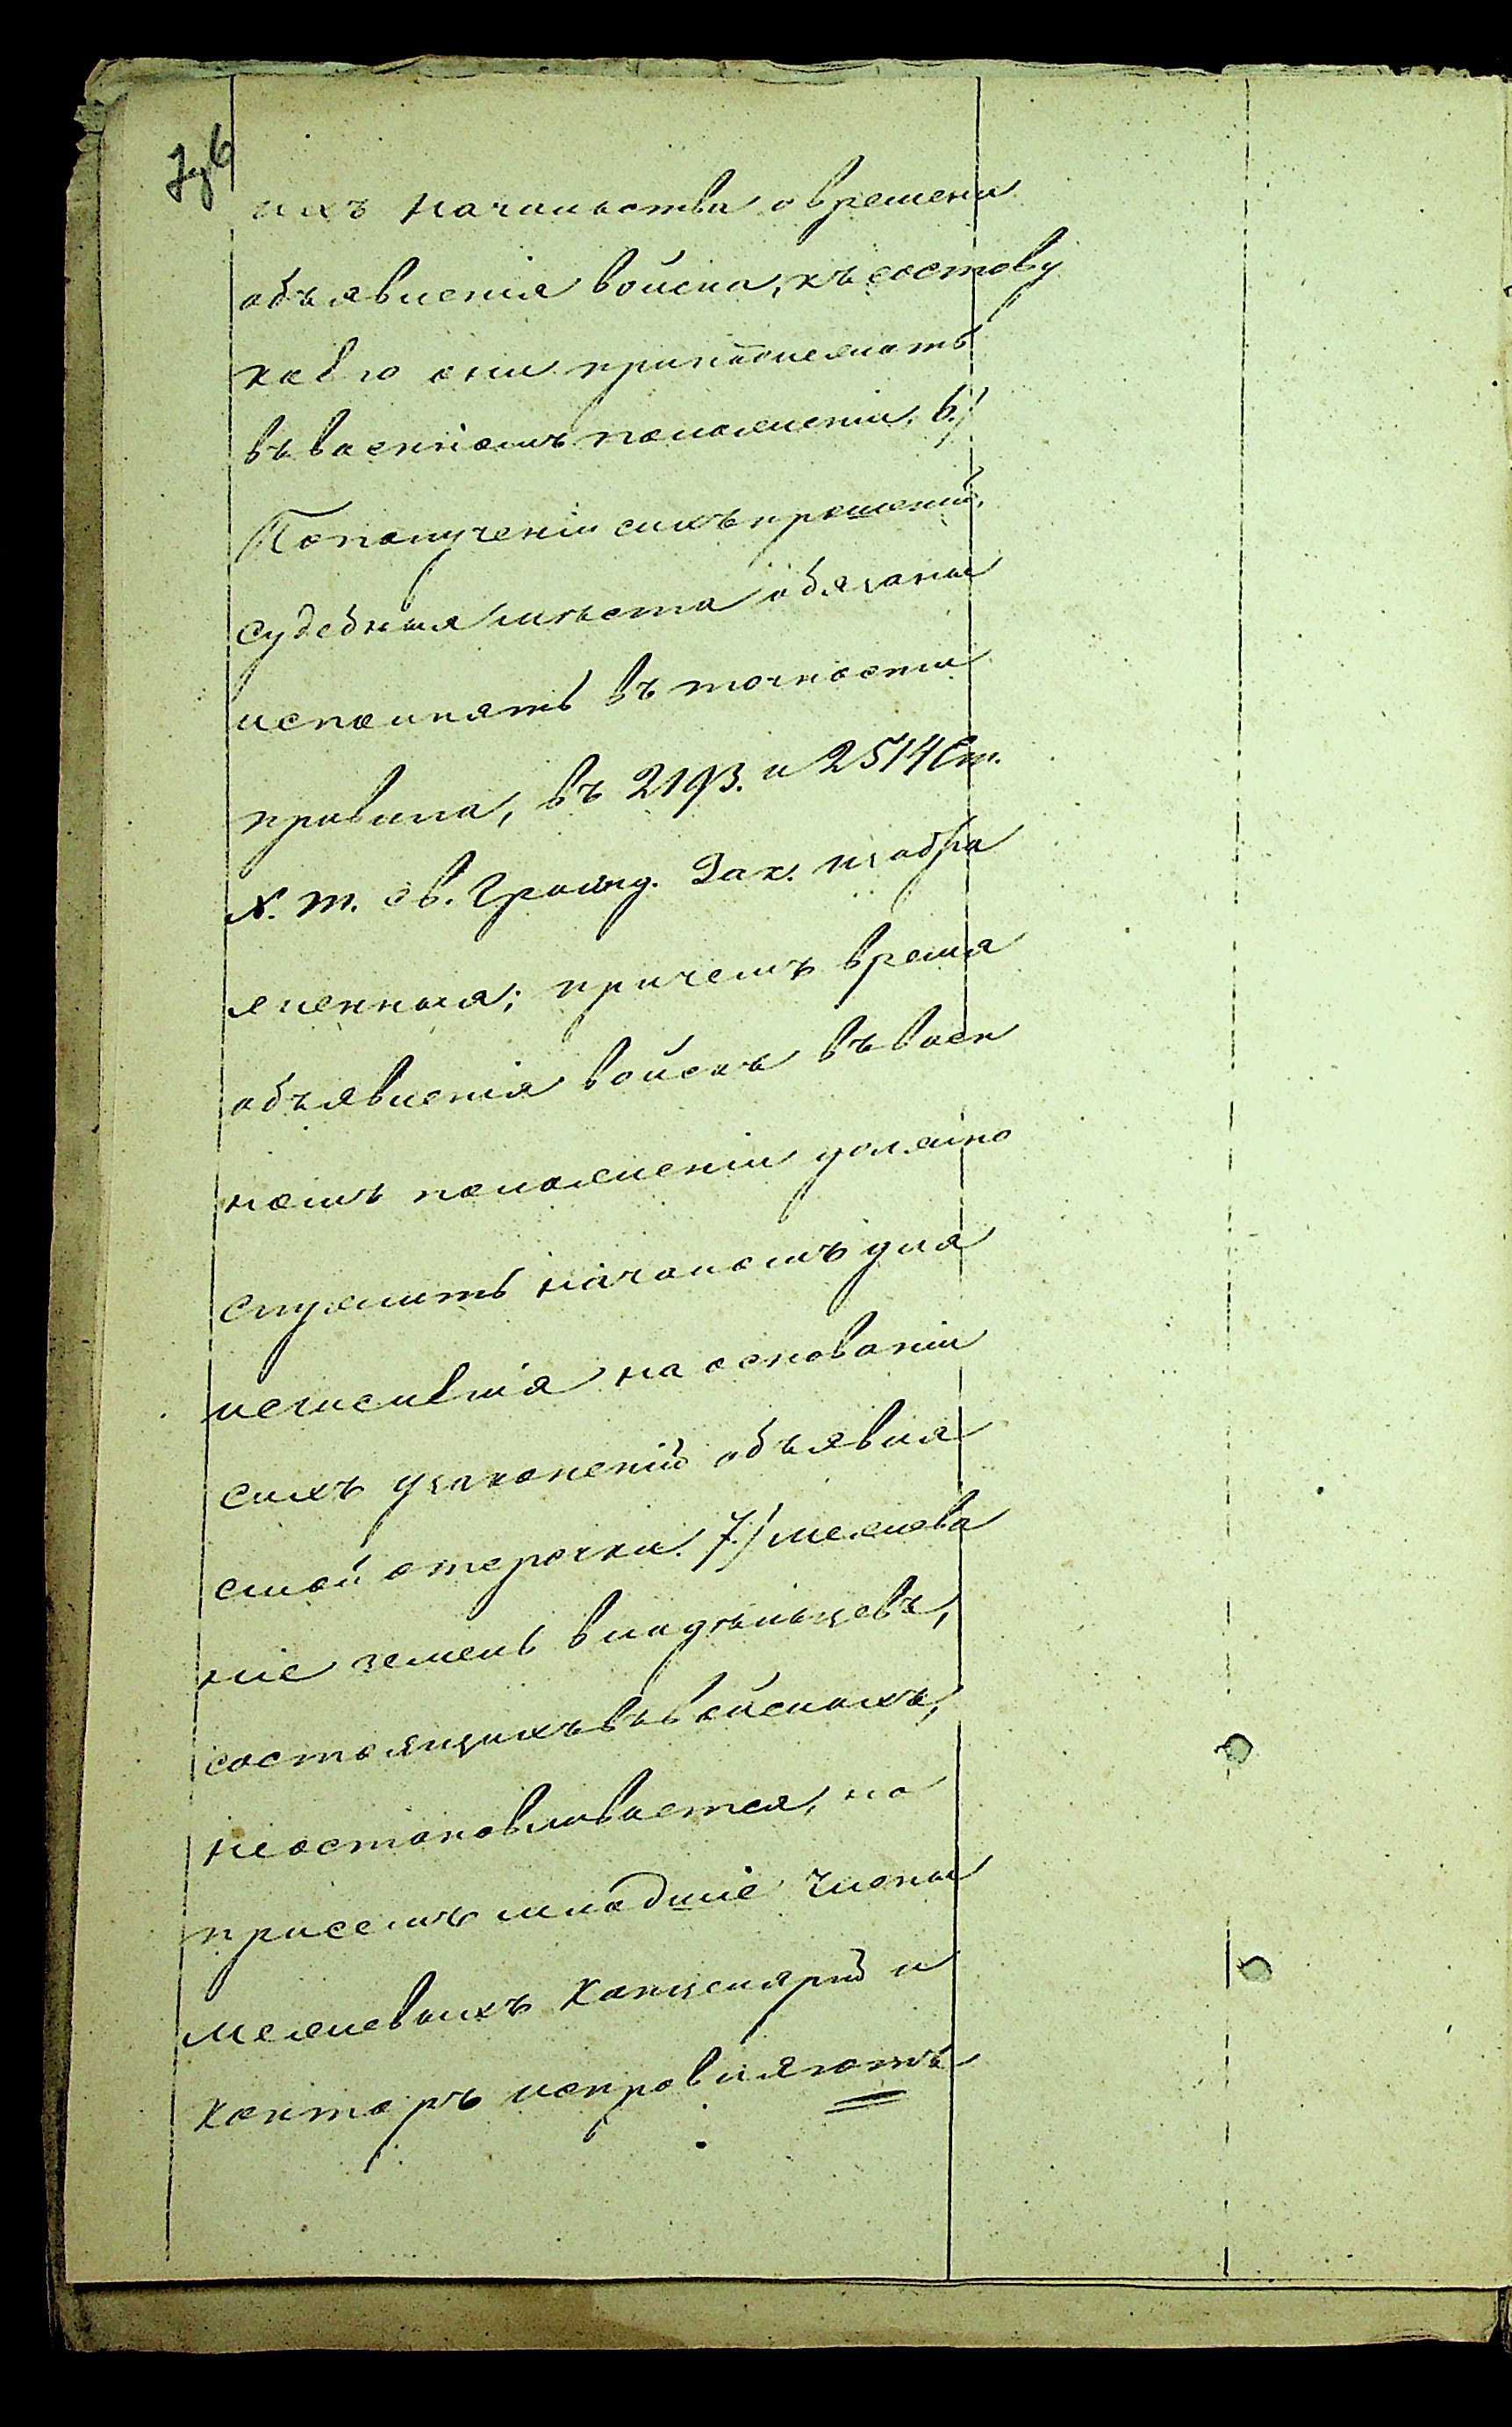 ихъ начальства о времени
объявленія войска, къ составу
коего они принадлежатъ
въ военномъ положеніи. 6./
По полученіи сихъ прошеній,
судебныя мѣста обязаны
исполнять въ точности
правила, въ 2193. и 2514 Ст.
X. т. Св. Гражд. Зак. изобра
женныя; причемъ время
объявленія войскъ въ воен
номъ положеніи должно
служить началомъ для
исчисленія на основаніи
сихъ узаконеній объявля
емой отсрочки. 7./ Межева
ніе земель владѣльцевъ,
состоящихъ въ войскахъ,
неостановливается, но
при семъ младшіе Члены
межевыхъ Канцелярій и
Конторъ исправляютъ